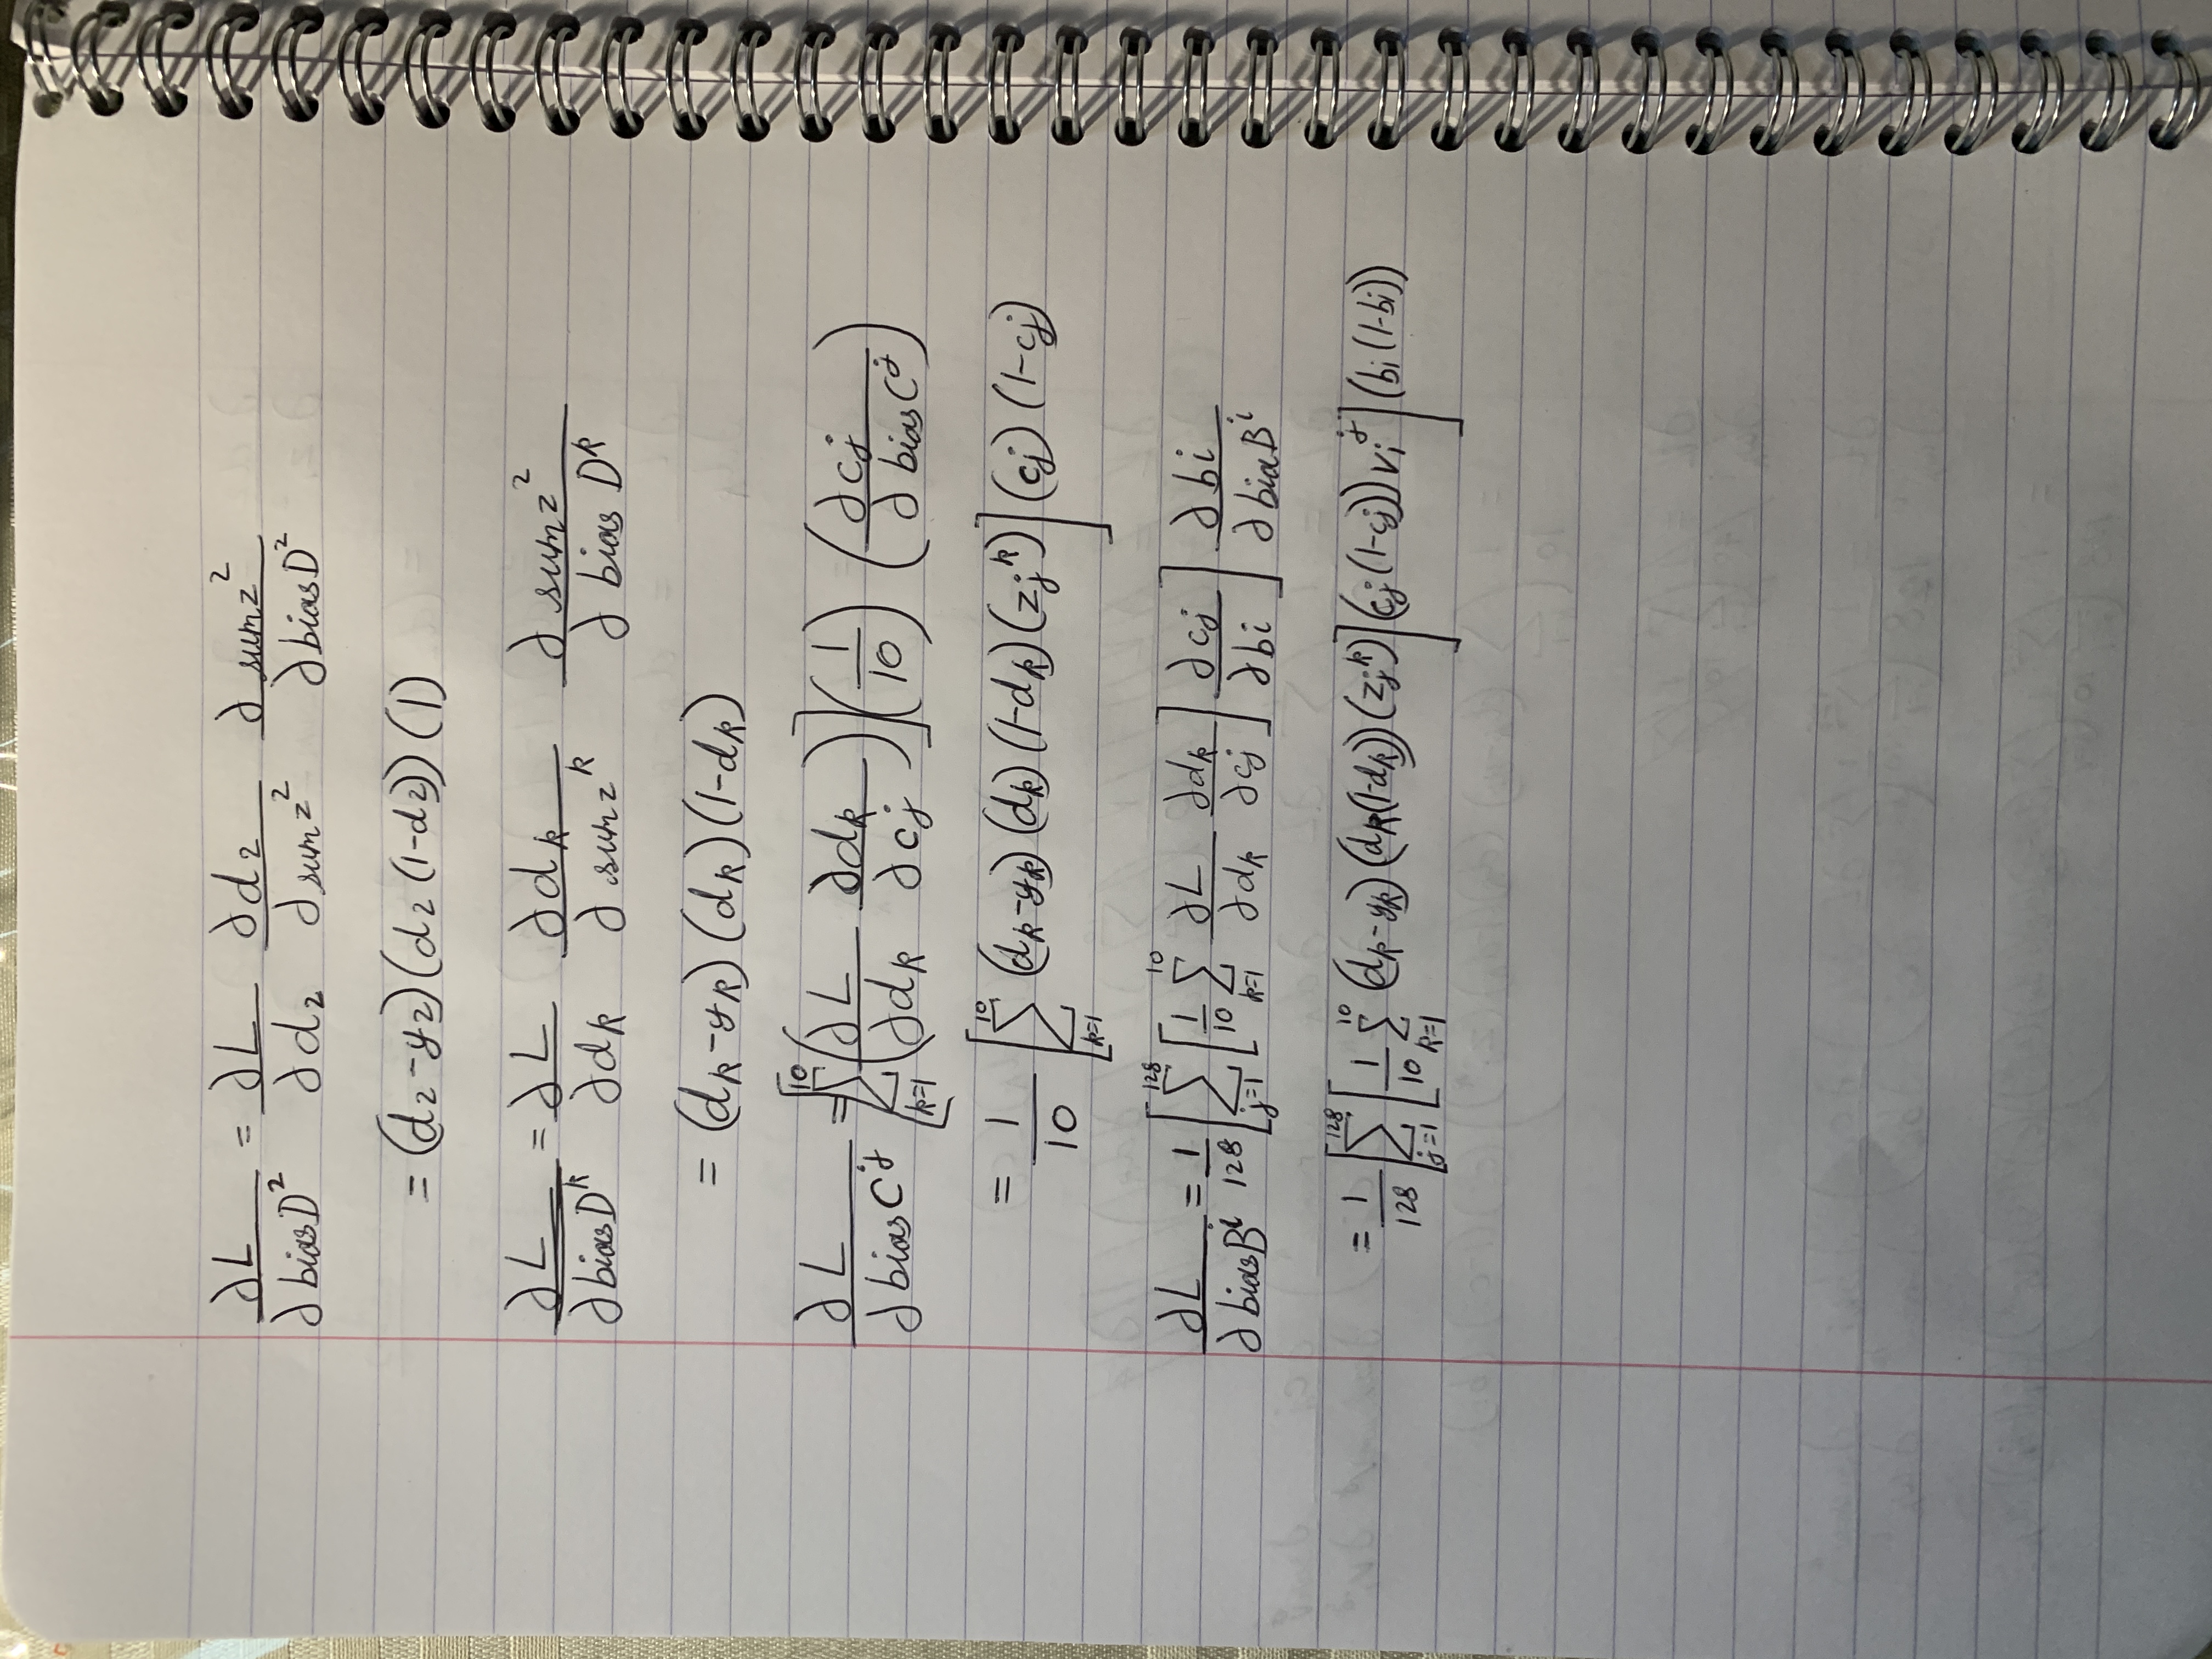 ∂L/∂biasD² = ∂L/∂d₂ ∂d₂/∂sumz² ∂sumz²/∂biasD²
= (d₂-y₂)(d₂(1-d₂))(1)
∂L/∂biasDᵏ = ∂L/∂dₖ ∂dₖ/∂sumzᵏ ∂sumz²/∂biasDᵏ
= (dₖ-yₖ)(dₖ)(1-dₖ)
∂L/∂biasCʲ = [∑_{k=1}^{10} (∂L/∂dₖ ∂dₖ/∂cⱼ)](1/10)(∂cⱼ/∂biasCʲ)
= 1/10 [∑_{k=1}^{10} (dₖ-yₖ)(dₖ)(1-dₖ)(zⱼᵏ)](cⱼ)(1-cⱼ)
∂L/∂biasBⁱ = 1/128 [∑_{j=1}^{128} [1/10 ∑_{k=1}^{10} ∂L/∂dₖ ∂dₖ/∂cⱼ] ∂cⱼ/∂bi] ∂bi/∂biaBⁱ
= 1/128 [∑_{j=1}^{128} [1/10 ∑_{k=1}^{10} (dₖ-yₖ)(dₖ(1-dₖ))(zⱼᵏ)](cⱼ(1-cⱼ))vᵢʲ](bi(1-bi))